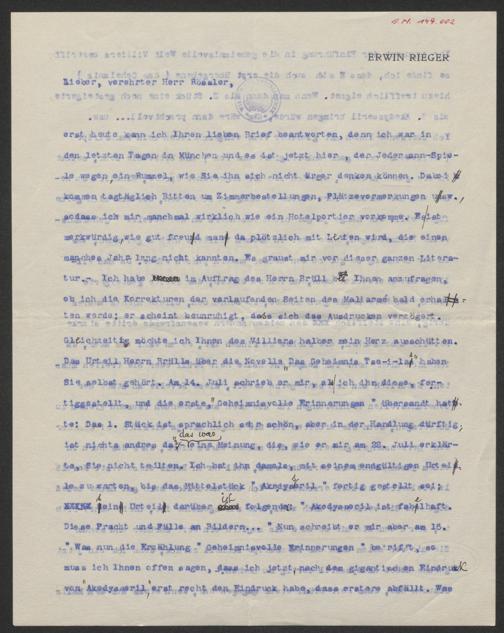 O.N. 149.002
ERWIN RIEGER
Lieber, verehrter Herr Rössler,
erst heute kann ich Ihren lieben Brief beantworten, denn ich war in
den letzten Tagen in München und es ist jetzt hier, der Jedermann-Spie-
le wegen, ein Rummel, wie Sie ihn sich nicht ärger denken können. Dabei
kommen tagtäglich Bitten um Zimmerbestellungen, Plätzevormerkungen usw.,
sodass ich mir manchmal wirklich wie ein Hotelportier vorkomme. Es ist
merkwürdig, wie gut freund man da plötzlich mit Leuten wird, die einen
manches Jahr lang nicht kannten. Es graust mir vor dieser ganzen Litera-
tur.- Ich habe in Auftrag des Herrn Brüll bei Ihnen anzufragen,
ob ich die Korrekturen der verlaufenden Seiten des Mallarmé bald erhal-
ten werde; er scheint beunruhigt, dass sich das Ausdrucken verzögert.
Gleichzeitig möchte ich Ihnen des Williers halber mein Herz ausschütten.
Das Urteil Herrn Brülls über die Novelle "Das Geheimnis Tse-i-la" haben
Sie selbst gehört. Am 14. Juli schrieb er mir, als ich ihn diese, fer-
tiggestellt, und die erste "Geheimnisvolle Erinnerungen" übersandt hat-
te: Das 1. Stück ist sprachlich sehr schön, aber in der Handlung dürftig;
ist nichts andres da? das war seine Meinung, die, wie er mir am 22. Juli erklär-
te, Sie nicht teilten. Ich bat ihn damals, mit seinem endgültigen Urteil
zu warten, bis das Mittelstück "Akedysseril" fertig gestellt sei;
sein Urteil darüber ist folgendes "Akedysseril ist fabelhaft.
Diese Pracht und Fülle an Bildern..." Nun schreibt er mir aber am 16.
"Was nun die Erzählung "Geheimnisvolle Erinnerungen" betrifft, so
muss ich Ihnen offen sagen, dass ich jetzt, nach dem gigantischen Eindruck
von "Akedysseril", erst recht den Eindruck habe, dass erstere abfällt. Was